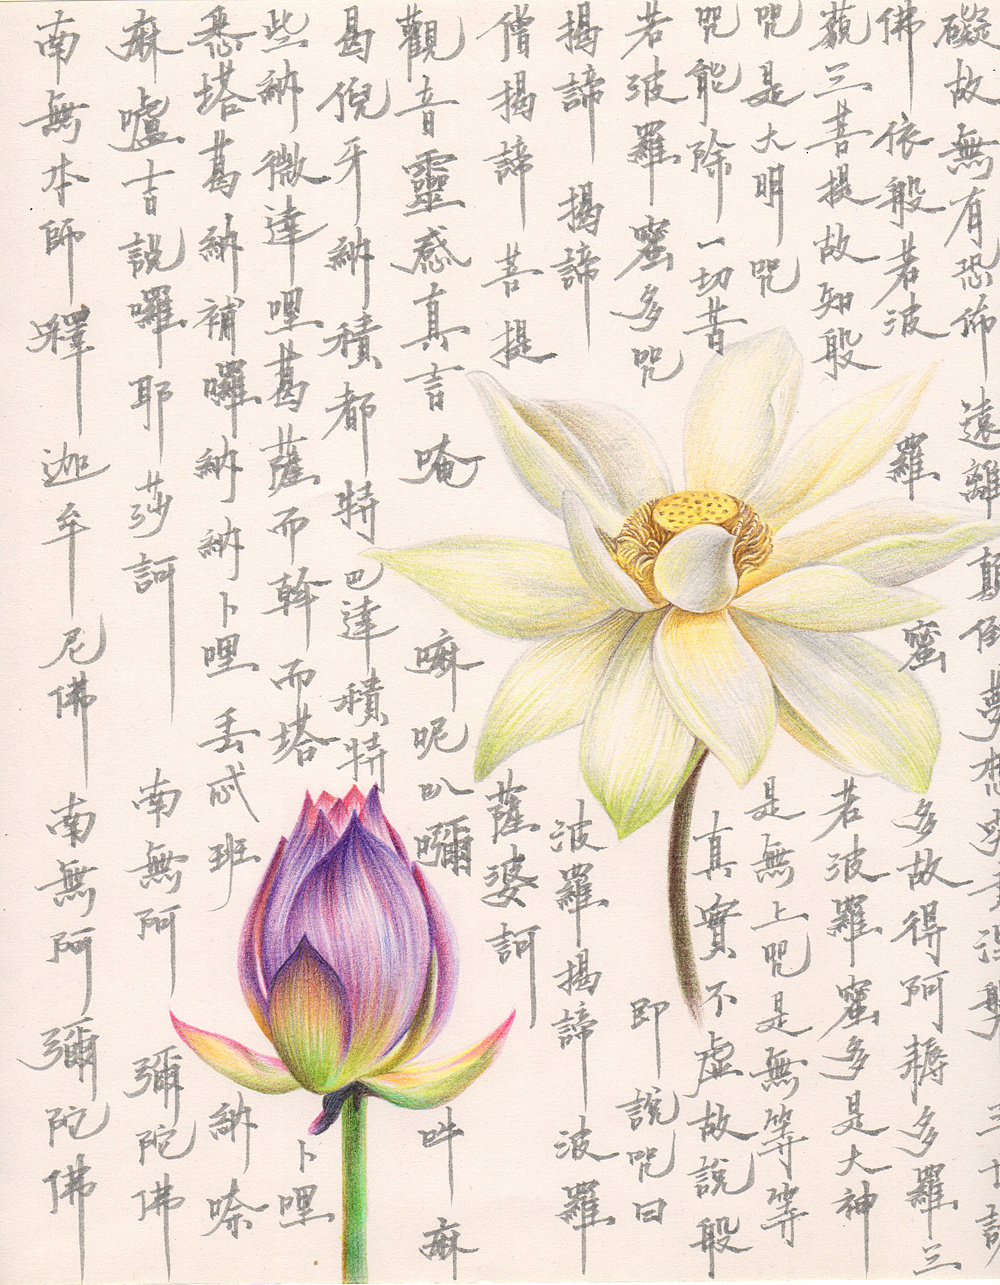 礙故無有恐佈遠離顛倒夢想究竟涅槃三世諸
佛依般若波羅蜜多故得阿耨多羅三
藐三菩提故知般若波羅蜜多是大神
咒是大明咒是無上咒是無等等
咒能除一切昔真實不虛故說般
若波羅蜜多咒即說咒曰
揭諦揭諦波羅揭諦波羅
僧揭諦菩提薩婆訶
觀音靈感真言唵嘛呢叭彌吽麻
曷倪牙納積都特巴達積特
些納微達哩葛薩而斡而塔卜哩
悉塔葛納補囉納納卜哩丟忒班納嗏
麻嚧吉說囉耶莎訶南無阿彌陀佛
南無本師釋迦牟尼佛南無阿彌陀佛